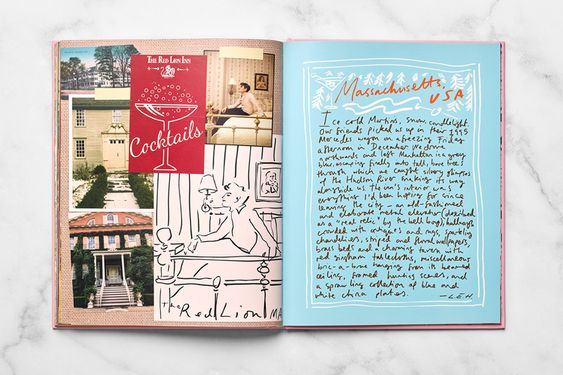 THE RED LION INN
Cocktails
The Red Lion MA
Massachusetts,
USA
Ice cold Martinis, snow, candlelight.
Our friends picked us up in their 1995
Mercedes wagon on a freezing Friday
afternoon in December. We drove
northwards and left Manhattan in a grey
blur, escaping finally into tall, bare trees
through which we caught silvery glimpses
of the Hudson River making its way
alongside us. The inn's interior was
everything I'd been hoping for since
leaving the city – an old-fashioned
and elaborate metal elevator (described
as a "real relic" by the bell boy), hallways
crowded with antiques and rugs, sparkling
chandeliers, striped and floral wallpapers,
brass beds and a charming tavern with
red gingham tablecloths, miscellaneous
bric-a-brac hanging from its beamed
ceiling, framed hunting scenes, and
a sprawling collection of blue and
white china plates.
— L.E.H.